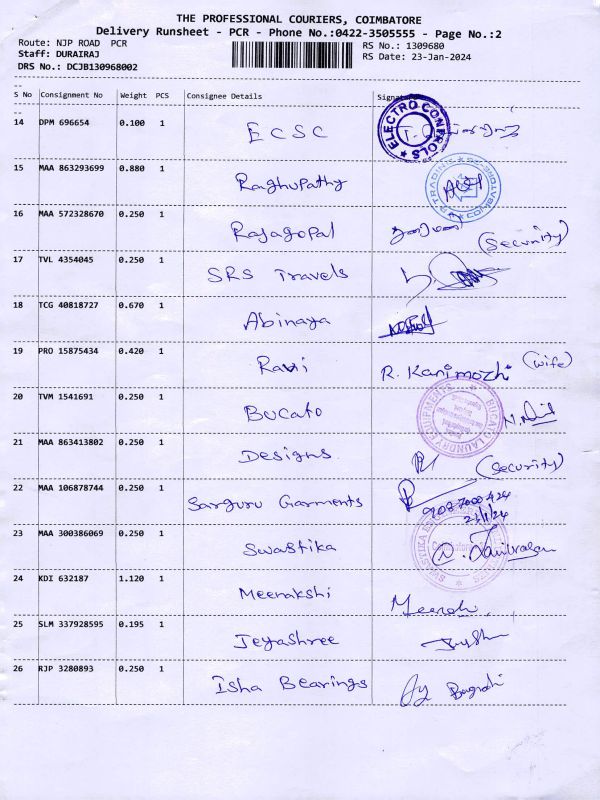 THE PROFESSIONAL COURIERS, COIMBATORE
Delivery Runsheet - PCR - Phone No.:0422-3505555 - Page No.:2
Route: NJP ROAD PCR
RS No.: 1309680
Staff: DURAIRAJ
RS Date: 23-Jan-2024
DRS No.: DCJB130968002
S No Consignment No Weight PCS Consignee Details Signature
14 DPM 696654 0.100 1 ECSC
ELECTRO CONTROLS
15 MAA 863293699 0.880 1 Raghupathy
16 MAA 572328670 0.250 1 Rajagopal (Security)
17 TVL 4354045 0.250 1 SRS Travels
18 TCG 40818727 0.670 1 Abinaya
19 PRO 15875434 0.420 1 Ravi R. Kanimozhi (wife)
20 TVM 1541691 0.250 1 Bucato
BUCATO LAUNDRY EQUIPMENTS
21 MAA 863413802 0.250 1 Designs (Security)
22 MAA 106878744 0.250 1 Sarguru Garments
23/1/24
23 MAA 300386069 0.250 1 Swastika
24 KDI 632187 1.120 1 Meenakshi
25 SLM 337928595 0.195 1 Jeyashree
26 RJP 3280893 0.250 1 Isha Bearings